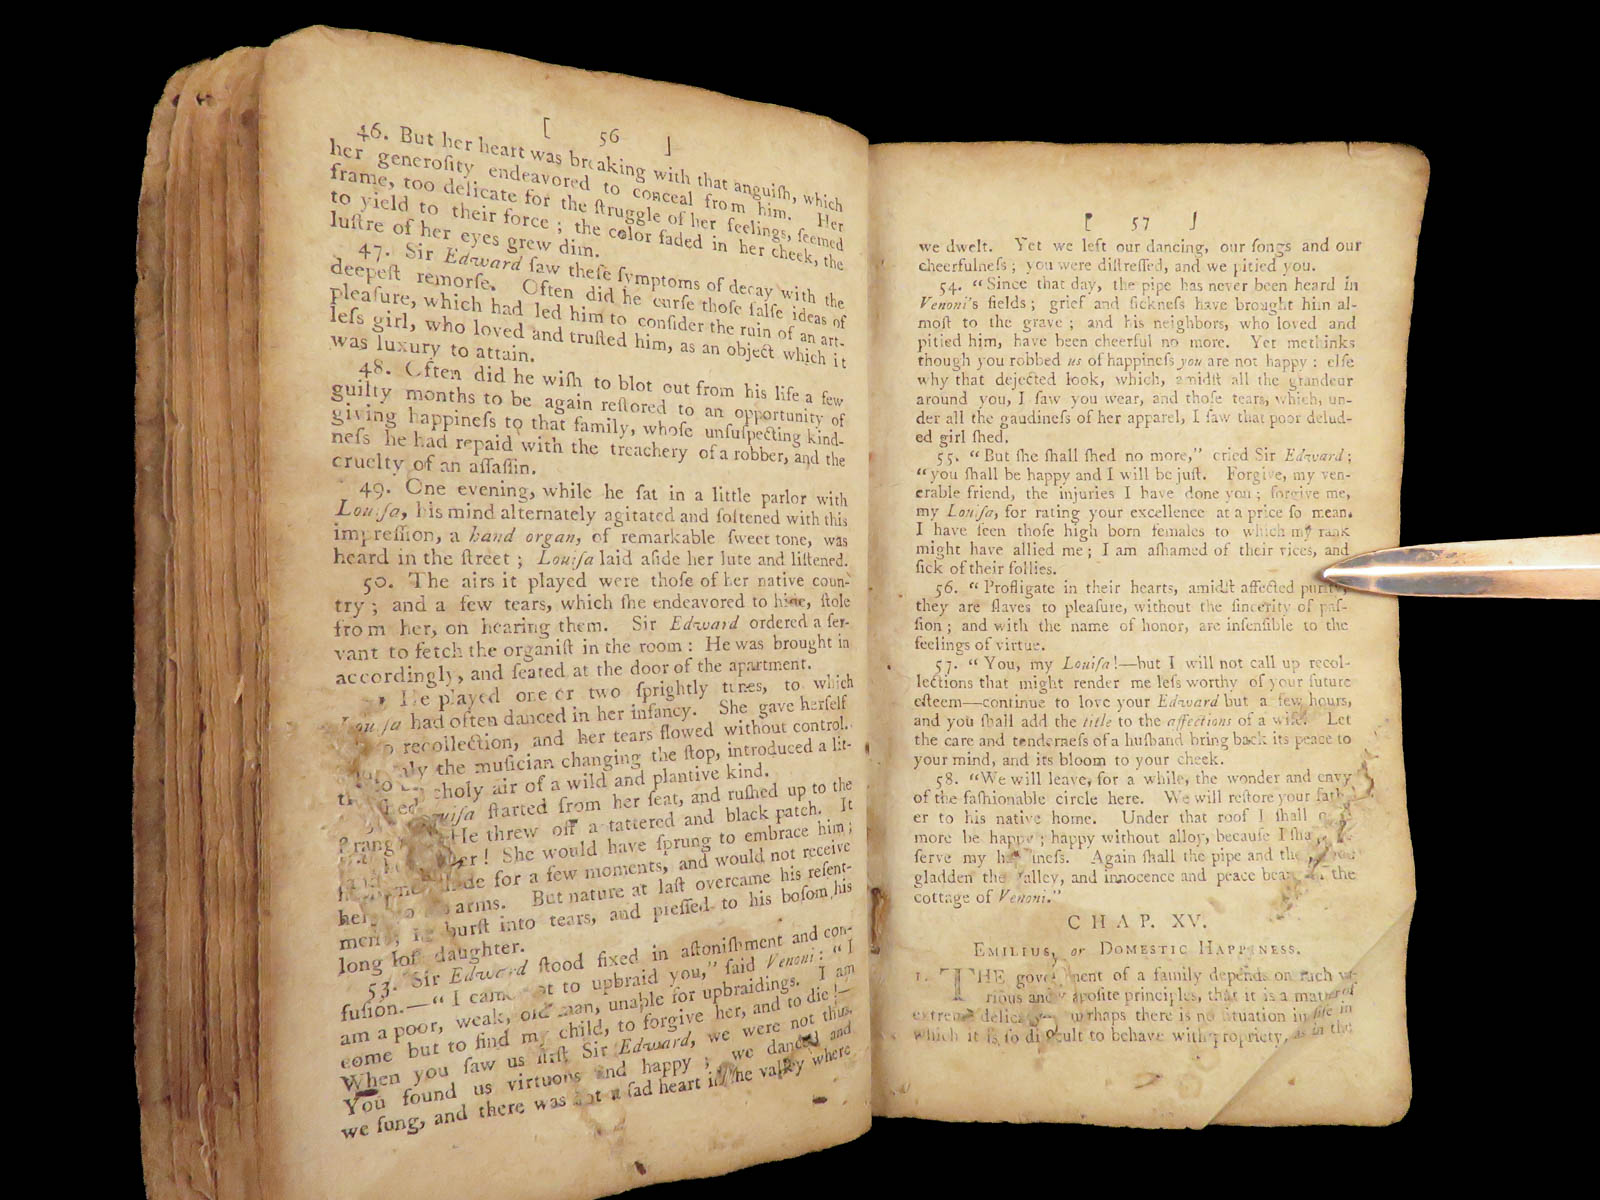 [ 56 ]
46. But her heart was breaking with that anguiſh, which
her generoſity endeavored to conceal from him. Her
frame, too delicate for the ſtruggle of her feelings, ſeemed
to yield to their force ; the color faded in her cheek, the
luſtre of her eyes grew dim.
47. Sir Edward ſaw theſe ſymptoms of decay with the
deepeſt remorſe. Often did he curſe thoſe falſe ideas of
pleaſure, which had led him to conſider the ruin of an art-
leſs girl, who loved and truſted him, as an object which it
was luxury to attain.
48. Often did he wiſh to blot out from his life a few
guilty months to be again reſtored to an opportunity of
giving happineſs to that family, whoſe unſuſpecting kind-
neſs he had repaid with the treachery of a robber, and the
cruelty of an aſſaſſin.
49. One evening, while he ſat in a little parlor with
Louiſa, his mind alternately agitated and ſoftened with this
impreſſion, a hand organ, of remarkable ſweet tone, was
heard in the ſtreet ; Louiſa laid aſide her lute and liſtened.
50. The airs it played were thoſe of her native coun-
try ; and a few tears, which ſhe endeavored to hide, ſtole
from her, on hearing them. Sir Edward ordered a ſer-
vant to fetch the organiſt in the room : He was brought in
accordingly, and ſeated at the door of the apartment.
He played one or two ſprightly tunes, to which
Louiſa had often danced in her infancy. She gave herſelf
recollection, and her tears flowed without control.
the muſician changing the ſtop, introduced a lit-
choly air of a wild and plantive kind.
Louiſa ſtarted from her ſeat, and ruſhed up to the
He threw off a tattered and black patch. It
! She would have ſprung to embrace him ;
for a few moments, and would not receive
her arms. But nature at laſt overcame his reſent-
burſt into tears, and preſſed to his boſom his
long loſt daughter.
53. Sir Edward ſtood fixed in aſtoniſhment and con-
fuſion.—“ I came not to upbraid you,” ſaid Venoni : “ I
am a poor, weak, old man, unable for upbraidings. I am
come but to find my child, to forgive her, and to die !—
When you ſaw us firſt Sir Edward, we were not thus.
You found us virtuous and happy ; we danced and
we ſung, and there was not a ſad heart in the valley where
[ 57 ]
we dwelt. Yet we left our dancing, our ſongs and our
cheerfulneſs ; you were diſtreſſed, and we pitied you.
54. “ Since that day, the pipe has never been heard in
Venoni's fields ; grief and ſickneſs have brought him al-
moſt to the grave ; and his neighbors, who loved and
pitied him, have been cheerful no more. Yet methinks
though you robbed us of happineſs you are not happy : elſe
why that dejected look, which, amidſt all the grandeur
around you, I ſaw you wear, and thoſe tears, which, un-
der all the gaudineſs of her apparel, I ſaw that poor delud-
ed girl ſhed.
55. “ But ſhe ſhall ſhed no more,” cried Sir Edward ;
“ you ſhall be happy and I will be juſt. Forgive, my ven-
erable friend, the injuries I have done you ; forgive me,
my Louiſa, for rating your excellence at a price ſo mean.
I have ſeen thoſe high born females to which my rank
might have allied me ; I am aſhamed of their vices, and
ſick of their follies.
56. “ Profligate in their hearts, amidſt affected purity,
they are ſlaves to pleaſure, without the ſincerity of paſ-
ſion ; and with the name of honor, are inſenſible to the
feelings of virtue.
57. “ You, my Louiſa !—but I will not call up recol-
lections that might render me leſs worthy of your future
eſteem—continue to love your Edward but a few hours,
and you ſhall add the title to the affections of a wife. Let
the care and tenderneſs of a huſband bring back its peace to
your mind, and its bloom to your cheek.
58. “We will leave, for a while, the wonder and envy
of the faſhionable circle here. We will reſtore your fath-
er to his native home. Under that roof I ſhall
more be happy ; happy without alloy, becauſe I ſha
ſerve my happineſs. Again ſhall the pipe and the
gladden the valley, and innocence and peace the
cottage of Venoni.”
CHAP. XV.
EMILIUS, or DOMESTIC HAPPINESS.
1. THE government of a family depends on ſuch va-
rious and appoſite principles, that it is a matter of
extreme perhaps there is no ſituation in life in
which it is ſo difficult to behave with propriety, as in the